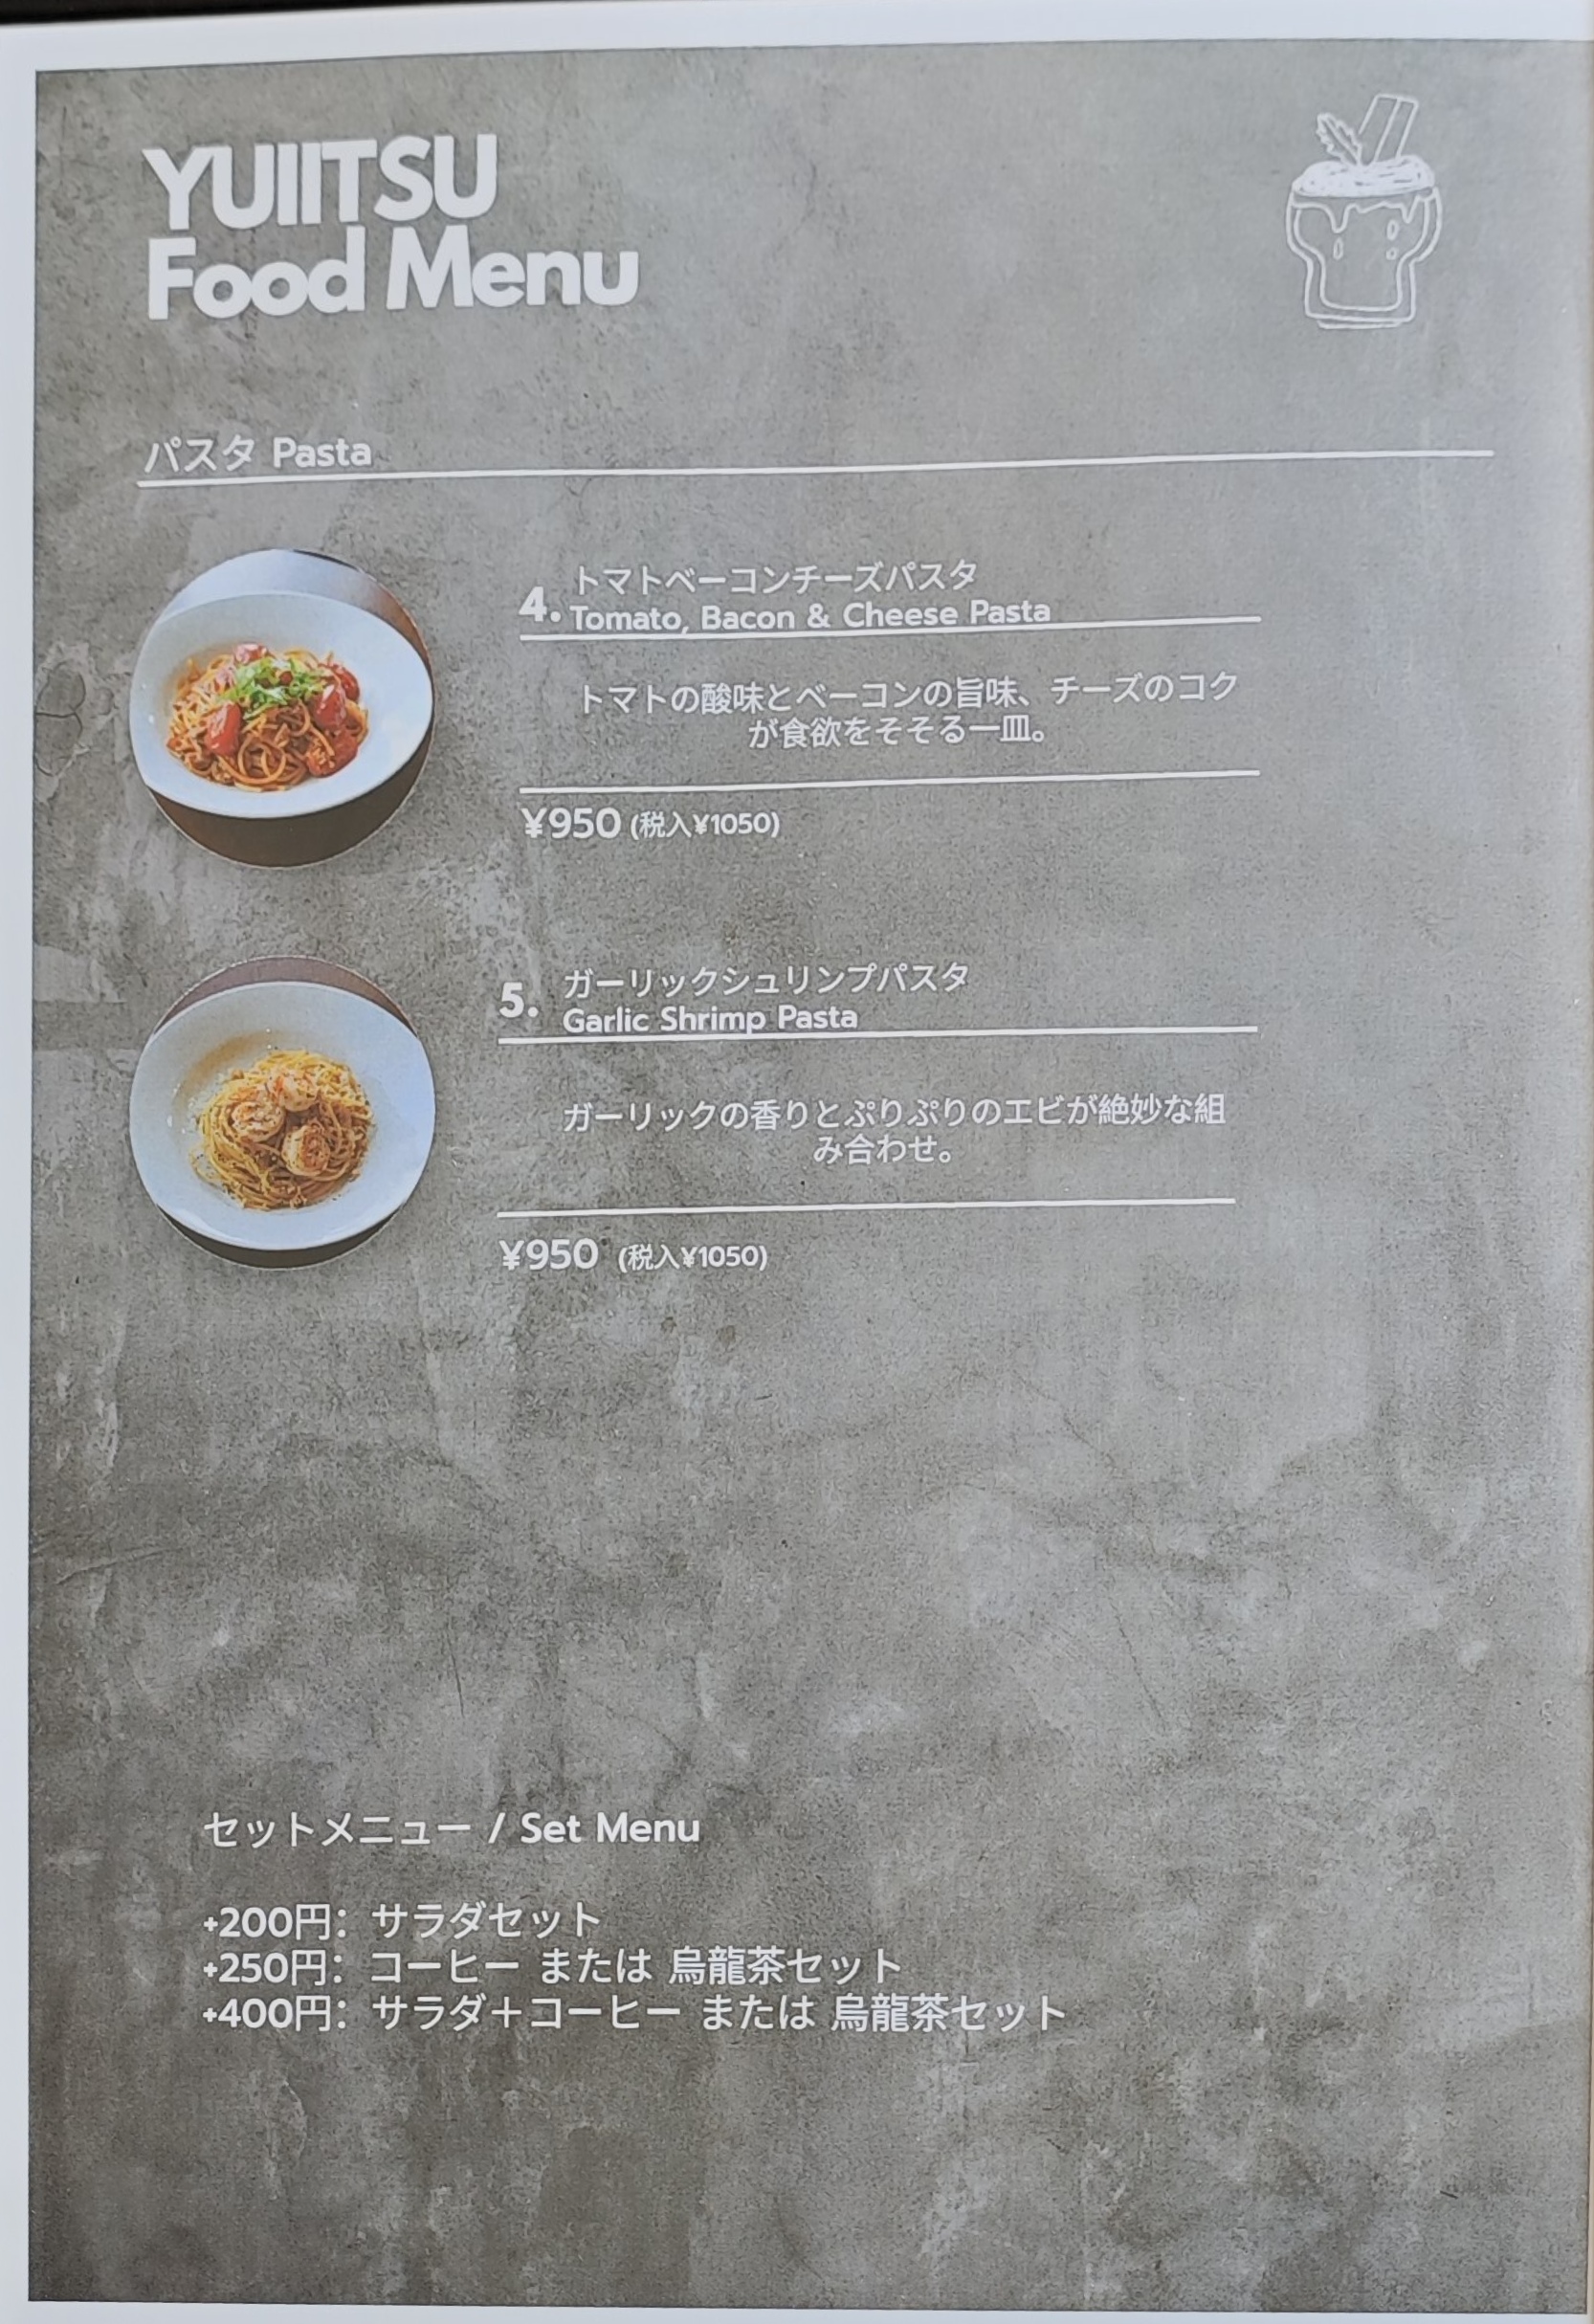 YUIITSU
Food Menu
パスタ Pasta
4. トマトベーコンチーズパスタ
Tomato, Bacon & Cheese Pasta
トマトの酸味とベーコンの旨味、チーズのコク
が食欲をそそる一皿。
¥950 (税入¥1050)
5. ガーリックシュリンプパスタ
Garlic Shrimp Pasta
ガーリックの香りとぷりぷりのエビが絶妙な組
み合わせ。
¥950 (税入¥1050)
セットメニュー / Set Menu
+200円：サラダセット
+250円：コーヒー または 烏龍茶セット
+400円：サラダ＋コーヒー または 烏龍茶セット